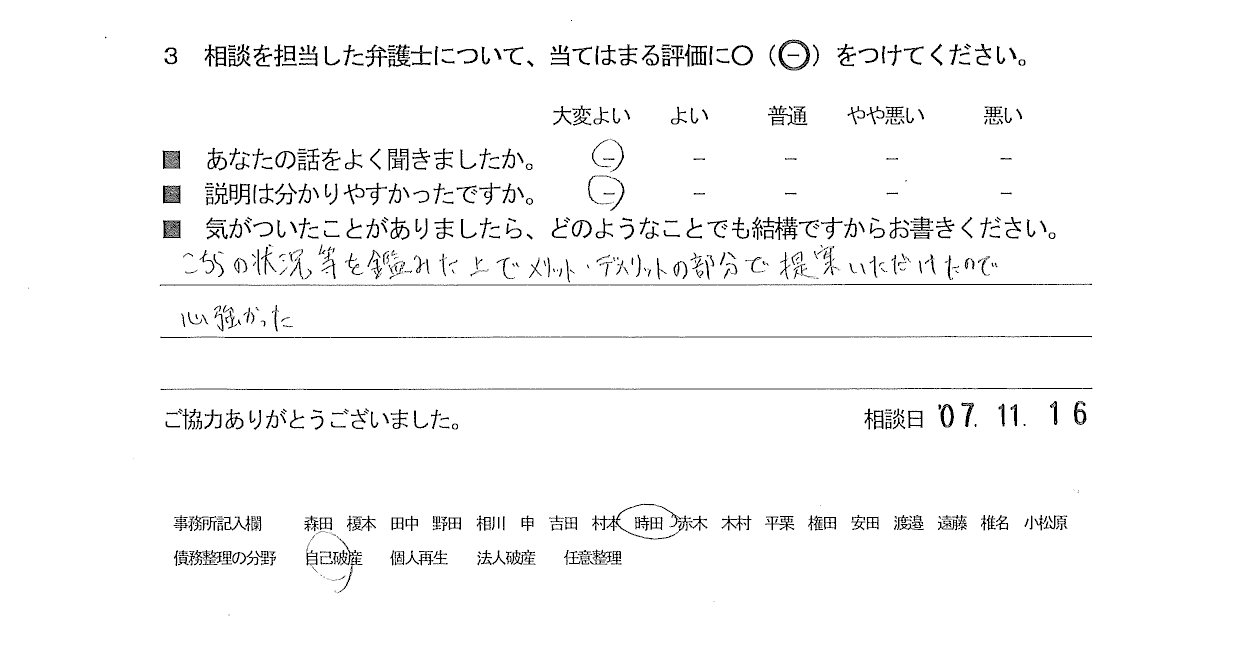 3 相談を担当した弁護士について、当てはまる評価に○（㊀）をつけてください。
大変よい よい 普通 やや悪い 悪い
■ あなたの話をよく聞きましたか。 − − − − −
■ 説明は分かりやすかったですか。 − − − − −
■ 気がついたことがありましたら、どのようなことでも結構ですからお書きください。
こちらの状況等を鑑みた上でメリット・デメリットの部分で提案いただけたので
心強かった
ご協力ありがとうございました。 相談日 '07. 11. 16
事務所記入欄 森田 榎木 田中 野田 相川 申 吉田 村本 時田 赤木 木村 平栗 権田 安田 渡邉 遠藤 椎名 小松原
債務整理の分野 自己破産 個人再生 法人破産 任意整理